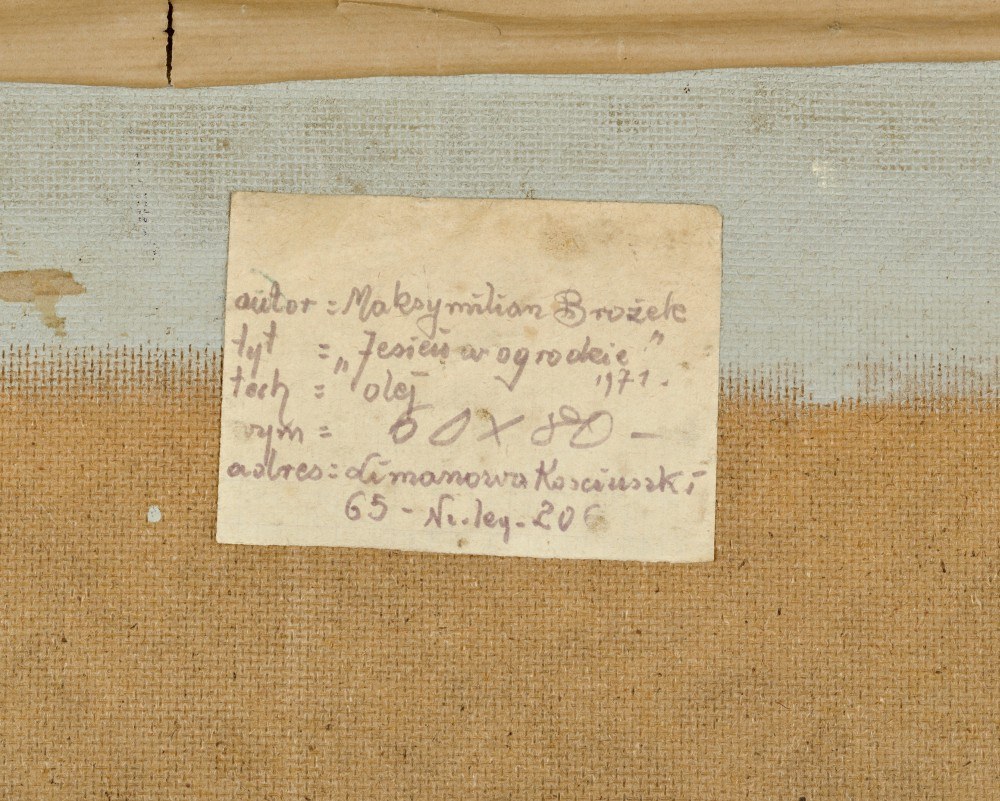 autor = Maksymilian Brożek
tyt = „Jesień w ogrodzie”
tech = olej 1971.
wym = 60 x 80 –
adres = Limanowa Kościuszki
65 – Nr. leg. 206